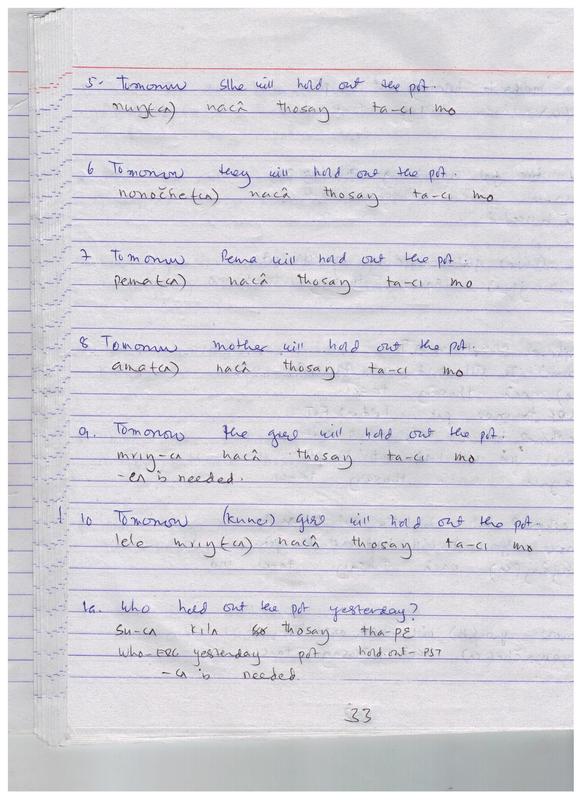 5. Tomorrow S/he will hold out the pot.
nuŋ(-ɛʌ) nacâ thosaŋ ta-cɩ mo
6 Tomorrow they will hold out the pot.
nonočhe(-ɛʌ) nacâ thosaŋ ta-cɩ mo
7 Tomorrow Pema will hold out the pot.
pema(-ɛʌ) nacâ thosaŋ ta-cɩ mo
8 Tomorrow mother will hold out the pot.
ama(-ɛʌ) nacâ thosaŋ ta-cɩ mo
9. Tomorrow the girl will hold out the pot.
mrɩŋ-ɛʌ nacâ thosaŋ ta-cɩ mo
-ɛʌ is needed.
10 Tomorrow girl will hold out the pot.
lele mrɩŋ(-ɛʌ) nacâ thosaŋ ta-cɩ mo
1a. Who held out the pot yesterday?
su-ɛʌ kɩlʌ thosaŋ tha-pɛ
who-ERG yesterday pot hold.out-PST
-ɛʌ is needed
33